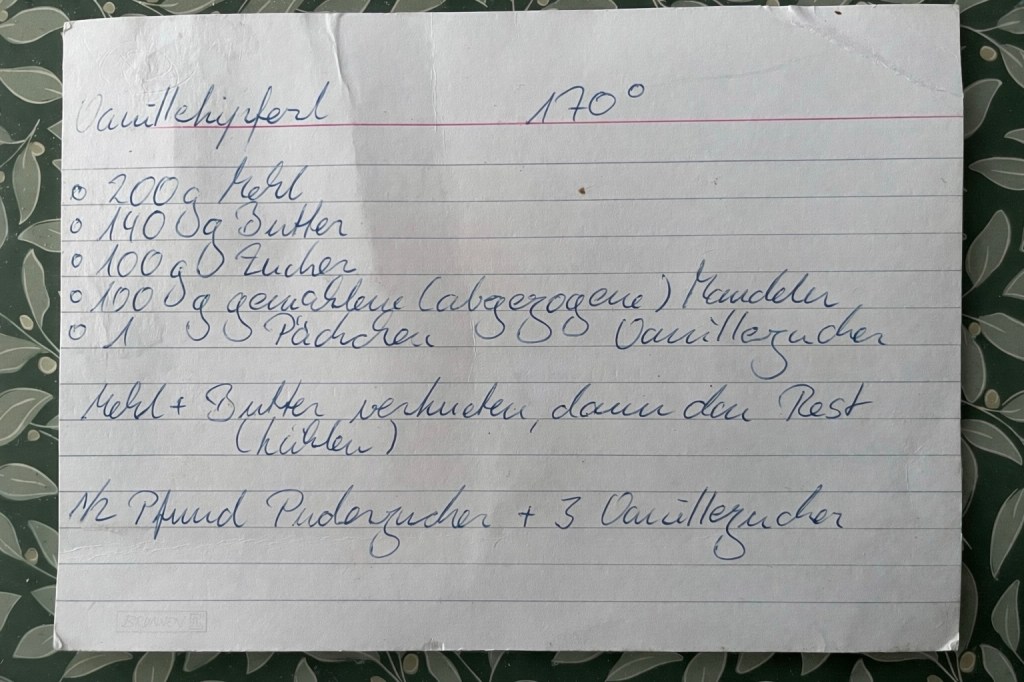 Vanillekipferl 170°
o 200g Mehl
o 140 g Butter
o 100g Zucker
o 100 g gemahlene (abgezogene) Mandeln
o 1 Päckchen Vanillezucker
Mehl + Butter verkneten, dann den Rest
(kühlen)
1/2 Pfund Puderzucker + 3 Vanillezucker
BRUNNEN